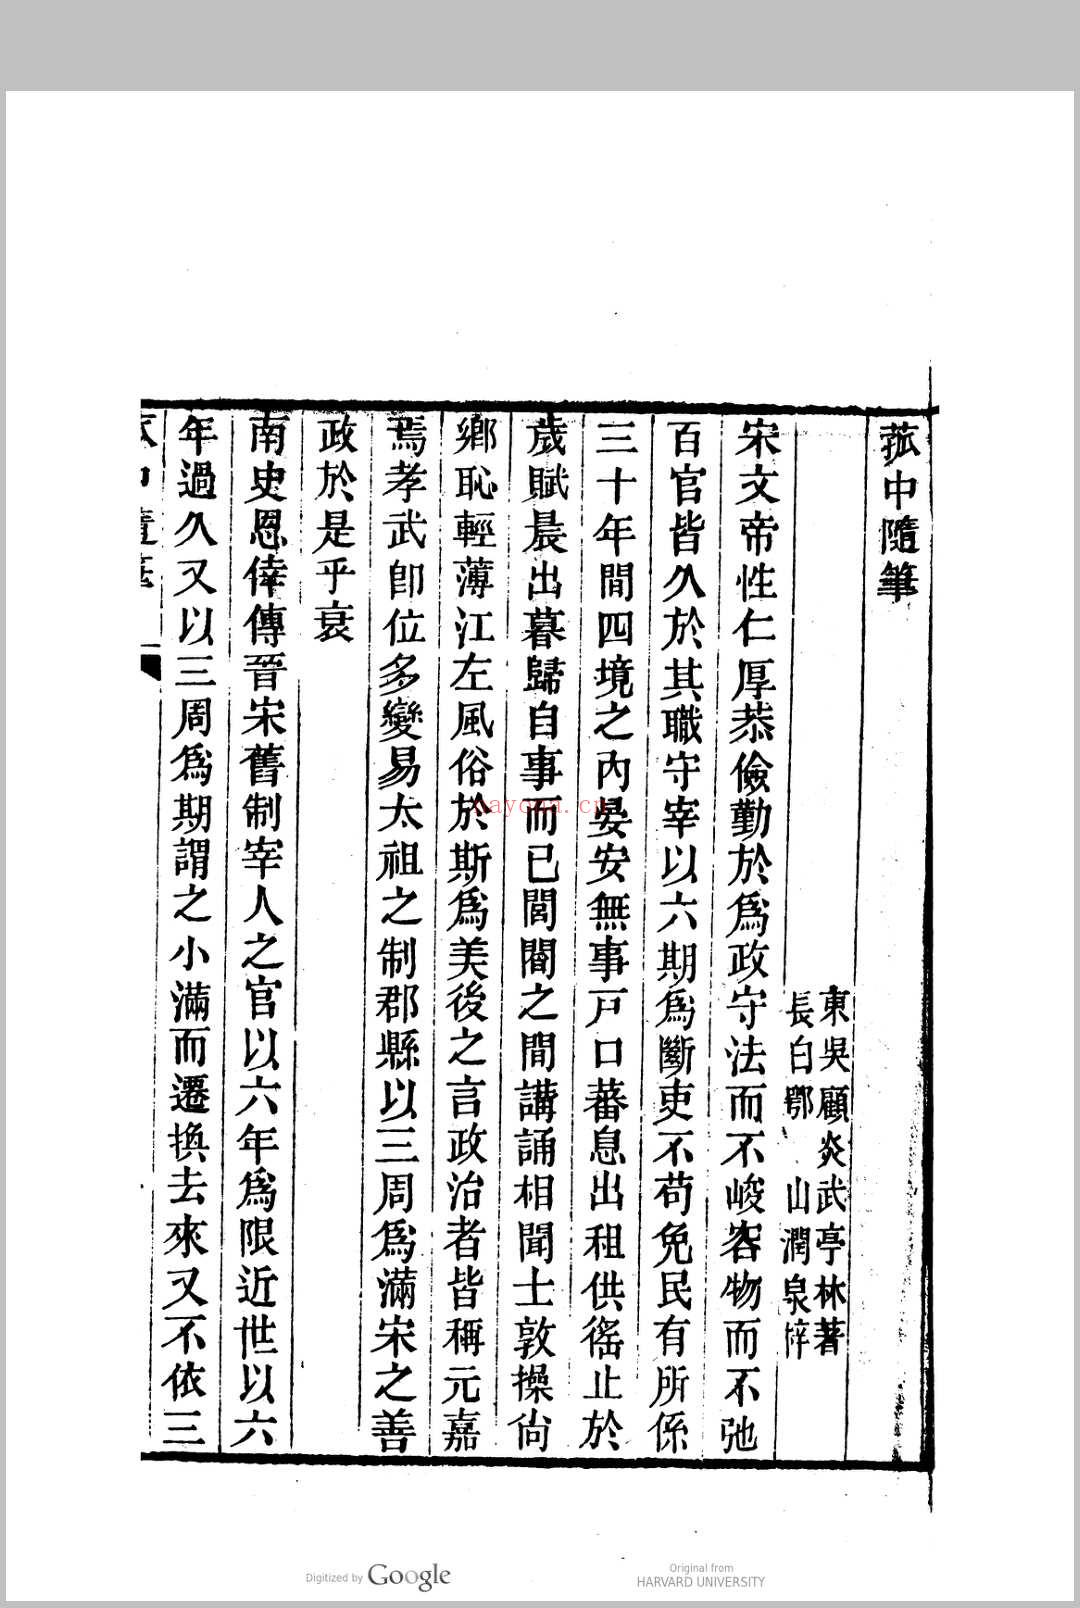 菰中隨筆
東吳顧炎武亭林著
長白鄂山潤泉梓
宋文帝性仁厚恭儉勤於爲政守法而不峻容物而不弛
百官皆久於其職守宰以六期爲斷吏不苟免民有所係
三十年間四境之內晏安無事戸口蕃息出租供徭止於
歲賦晨出暮歸自事而已閭閻之間講誦相聞士敦操尙
鄉恥輕薄江左風俗於斯爲美後之言政治者皆稱元嘉
焉孝武卽位多變易太祖之制郡縣以三周爲滿宋之善
政於是乎衰
南史恩倖傳晉宋舊制宰人之官以六年爲限近世以六
年過久又以三周爲期謂之小滿而遷換去來又不依三
nayona.cn
Digitized by Google
Original from
HARVARD UNIVERSITY